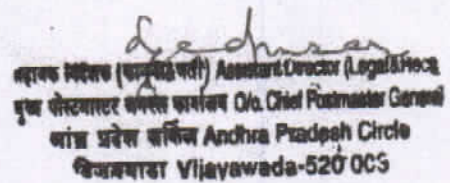 सहायक निदेशक (कानूनी व भर्ती) Assistant Director (Legal & Recs
मुख्य पोस्टमास्टर जनरल कार्यालय O/o. Chief Postmaster General
आंध्र प्रदेश सर्किल Andhra Pradesh Circle
विजयवाडा Vijayawada-520 003